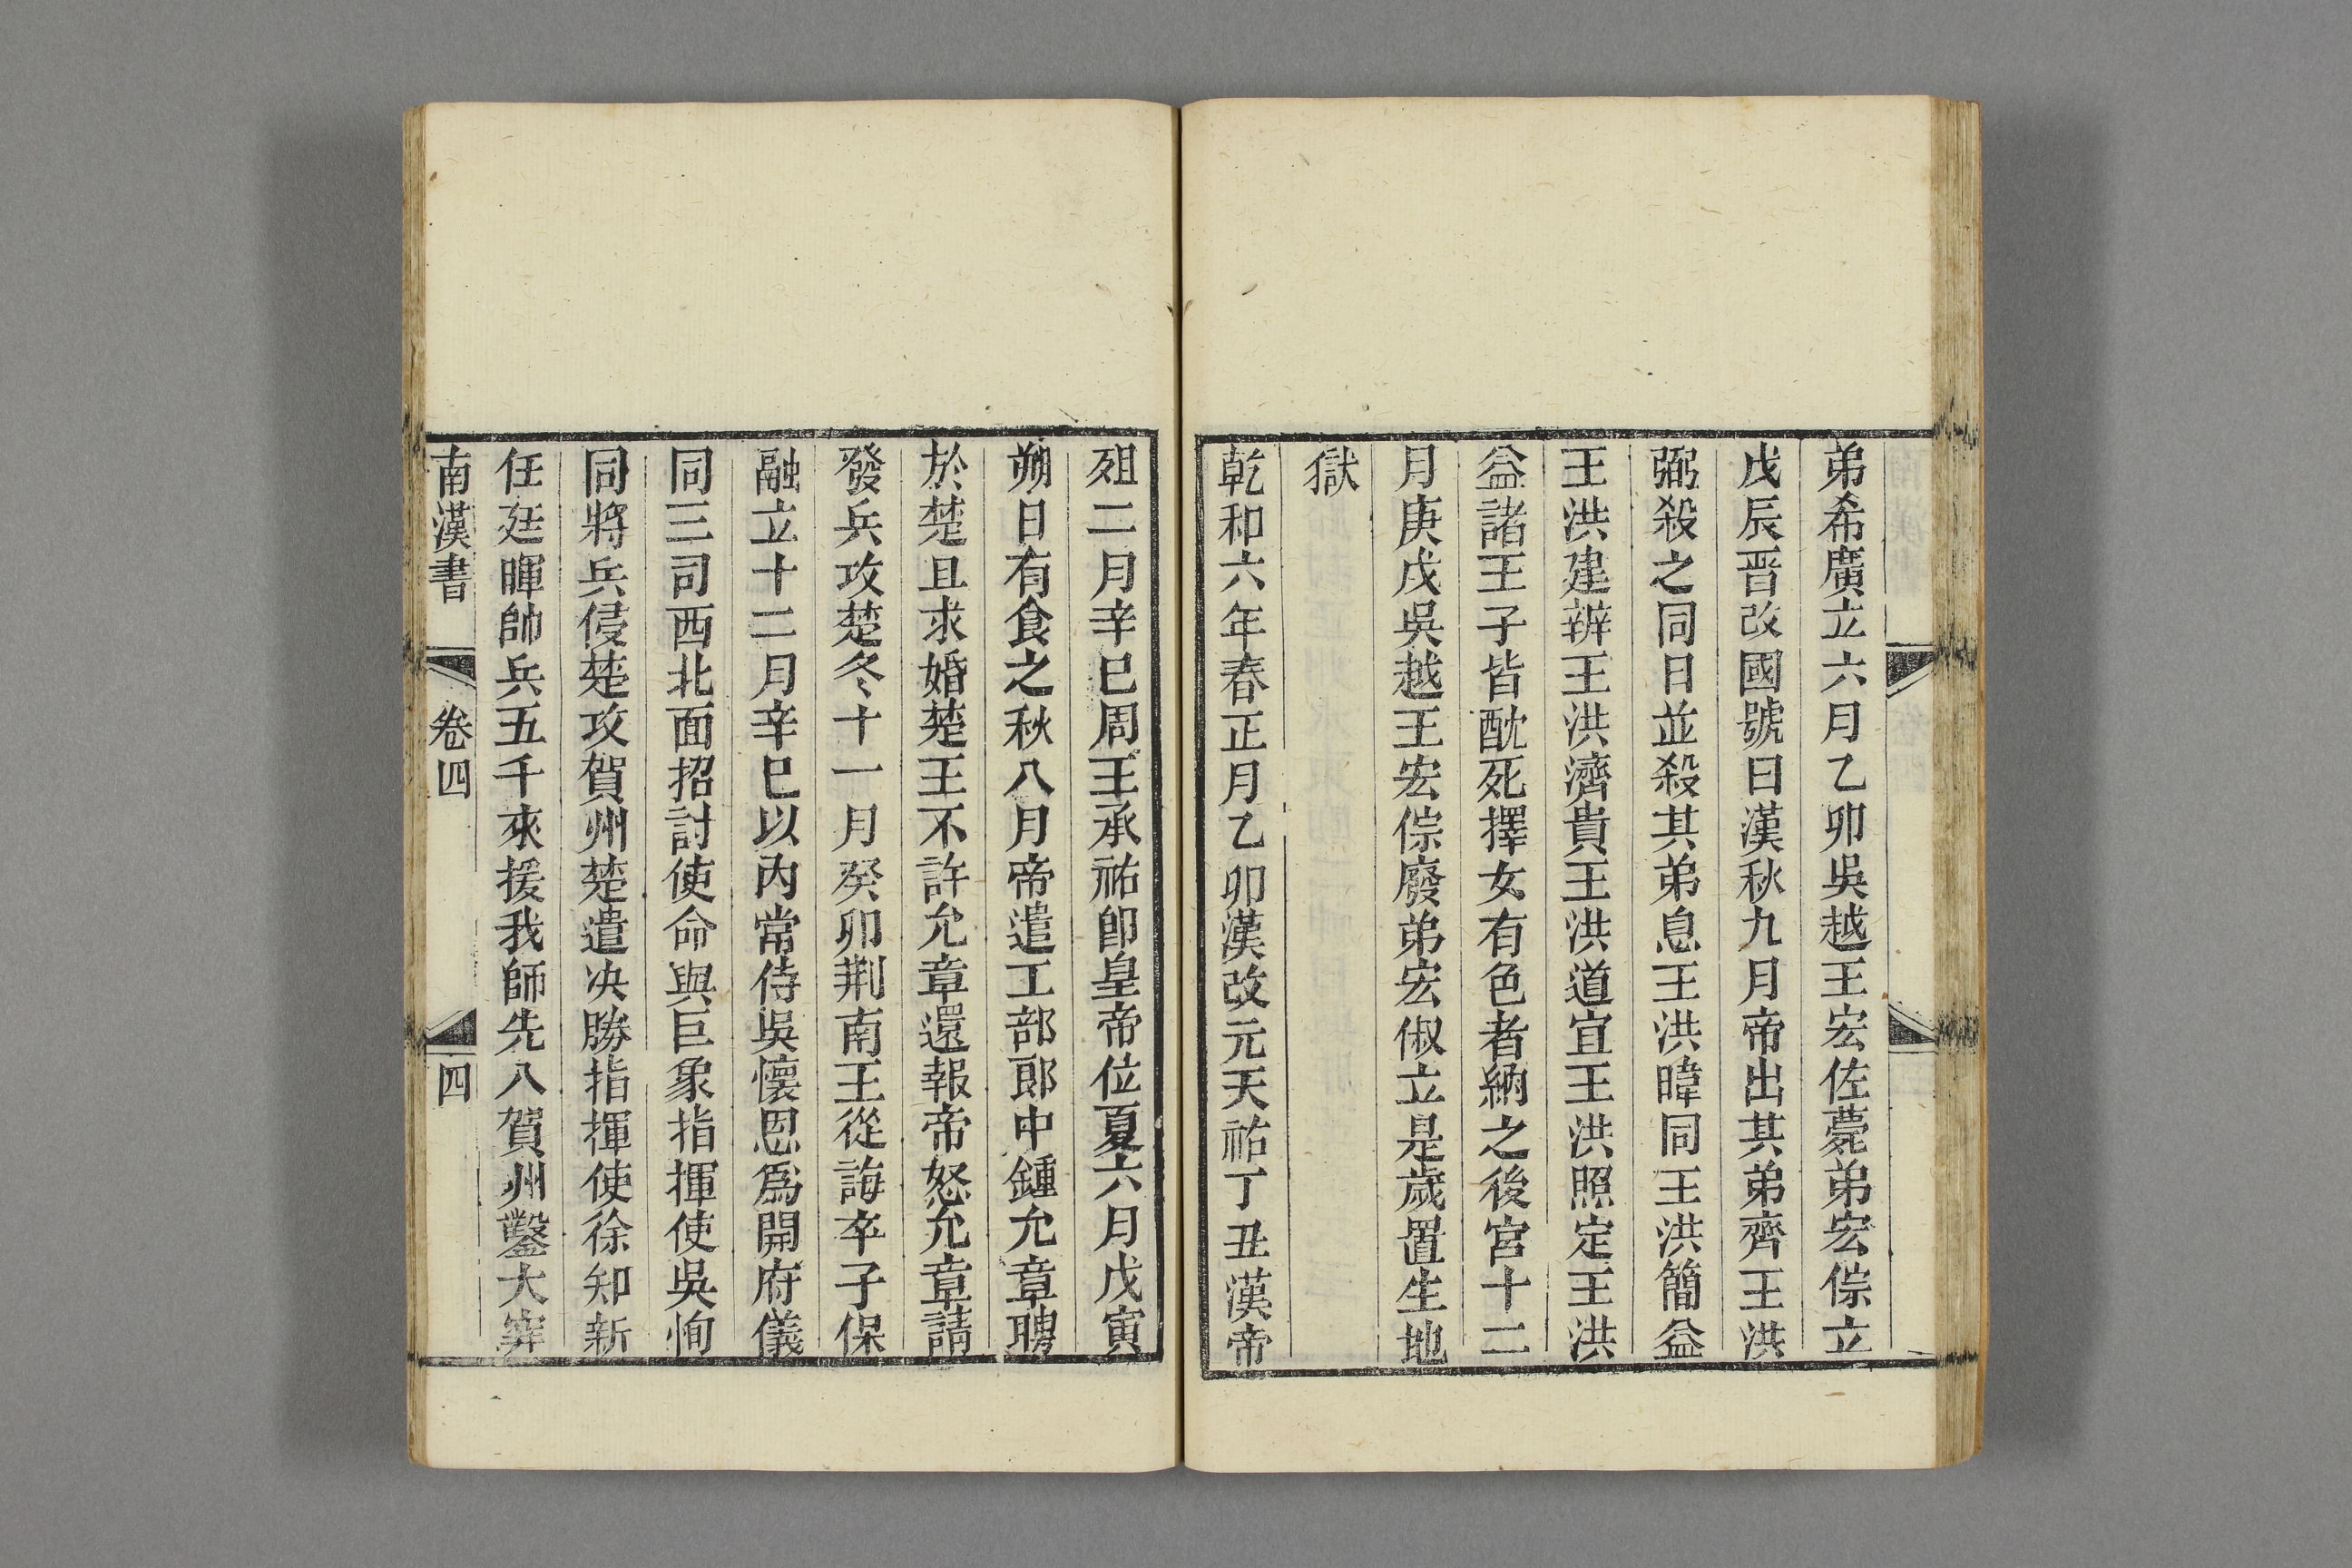 弟希廣立六月乙卯吳越王宏佐薨弟宏倧立
戊辰晉改國號曰漢秋九月帝出其弟齊王洪
弼殺之同日並殺其弟息王洪暐同王洪簡益
王洪建辨王洪濟貴王洪道宜王洪照定王洪
益諸王子皆酖死擇女有色者納之後宮十二
月庚戌吳越王宏倧廢弟宏俶立是歲置生地
獄
乾和六年春正月乙卯漢改元天祐丁丑漢帝
殂二月辛巳周王承祐卽皇帝位夏六月戊寅
朔日有食之秋八月帝遣工部郎中鍾允章聘
於楚且求婚楚王不許允章還報帝怒允章請
發兵攻楚冬十一月癸卯荆南王從誨卒子保
融立十二月辛巳以內常侍吳懷恩爲開府儀
同三司西北面招討使命與巨象指揮使吳恂
同將兵侵楚攻賀州楚遣决勝指揮使徐知新
任廷暉帥兵五千來援我師先入賀州鑿大穽
南漢書 卷四 四